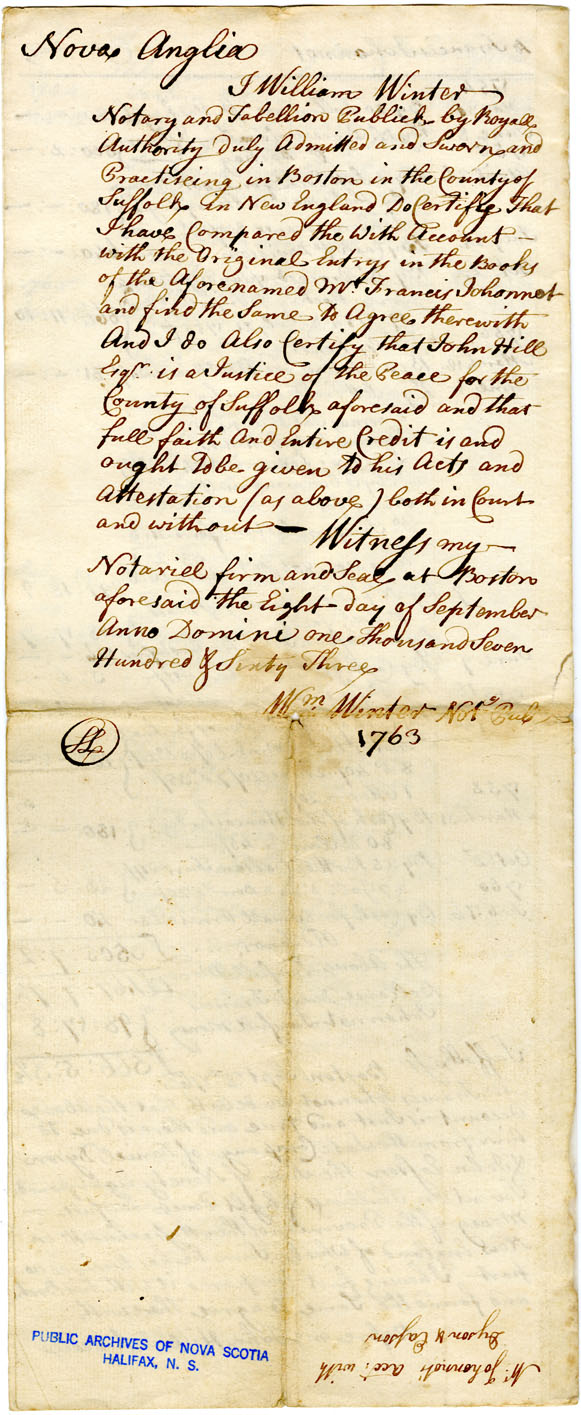 Nova Anglia
I William Winter
Notary and Tabellion Publick by Royall
Authority Duly Admitted and Sworn and
Practiseing in Boston in the County of
Suffolk in New England Do Certify That
I have Compared the With Account –
with the Original Entrys in the Books
of the Aforenamed Mr. Francis Johonnot
and find the Same to Agree therewith
And I do Also Certify that John Hill
Esqr. is a Justice of the Peace for the
County of Suffolk aforesaid and that
full faith And Entire Credit is and
ought to be given to his Acts and
Attestation (as above) both in Court
and without – Witness my –
Notariel firm and Seal at Boston
aforesaid the Eight day of September
Anno Domini one Thousand Seven
Hundred & Sixty Three
Wm Winter Nots Pub
1763
PUBLIC ARCHIVES OF NOVA SCOTIA
HALIFAX, N. S.
Mr. Johonnots Acct. with
Dyson & Easson